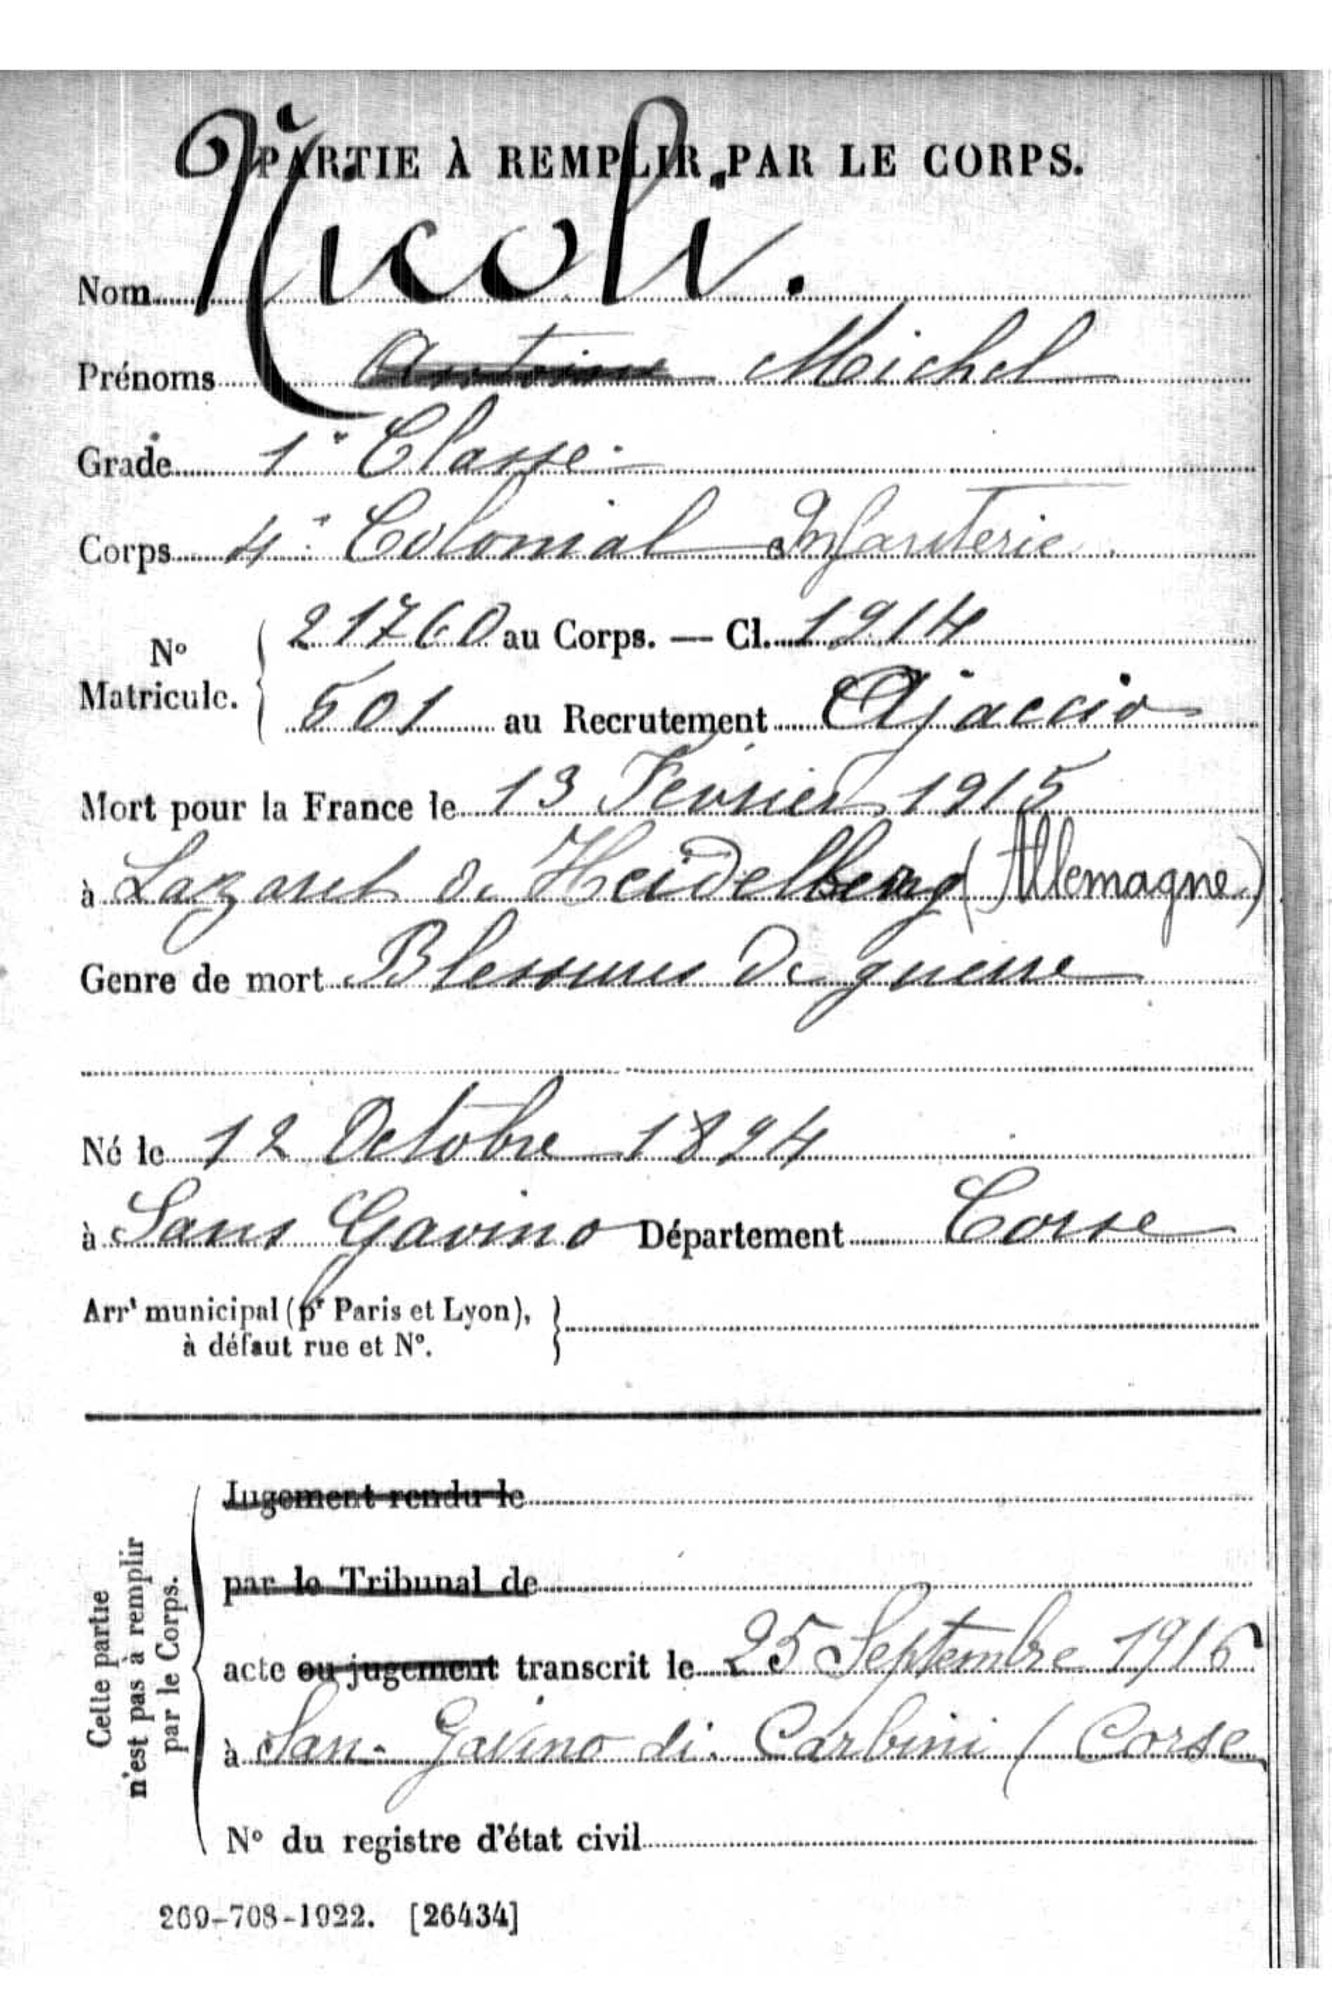 PARTIE À REMPLIR PAR LE CORPS.
Nom Nicoli.
Prénoms Antoine Michel
Grade 1e Classe
Corps 4e Colonial Infanterie
N° Matricule. { 21760 au Corps. — Cl. 1914
501 au Recrutement Ajaccio
Mort pour la France le 13 Fevrier 1915
à Lazaret de Heidelberg (Allemagne)
Genre de mort Blessures de guerre
Né le 12 Octobre 1894
à Sans Gavino Département Corse
Arrt municipal (pr Paris et Lyon), }
à défaut rue et N°.
Cette partie
n'est pas à remplir
par le Corps.
Jugement rendu le
par le Tribunal de
acte ou jugement transcrit le 25 Septembre 1916
à San. Gavino di Carbini (Corse
N° du registre d'état civil
269-708-1922. [26434]